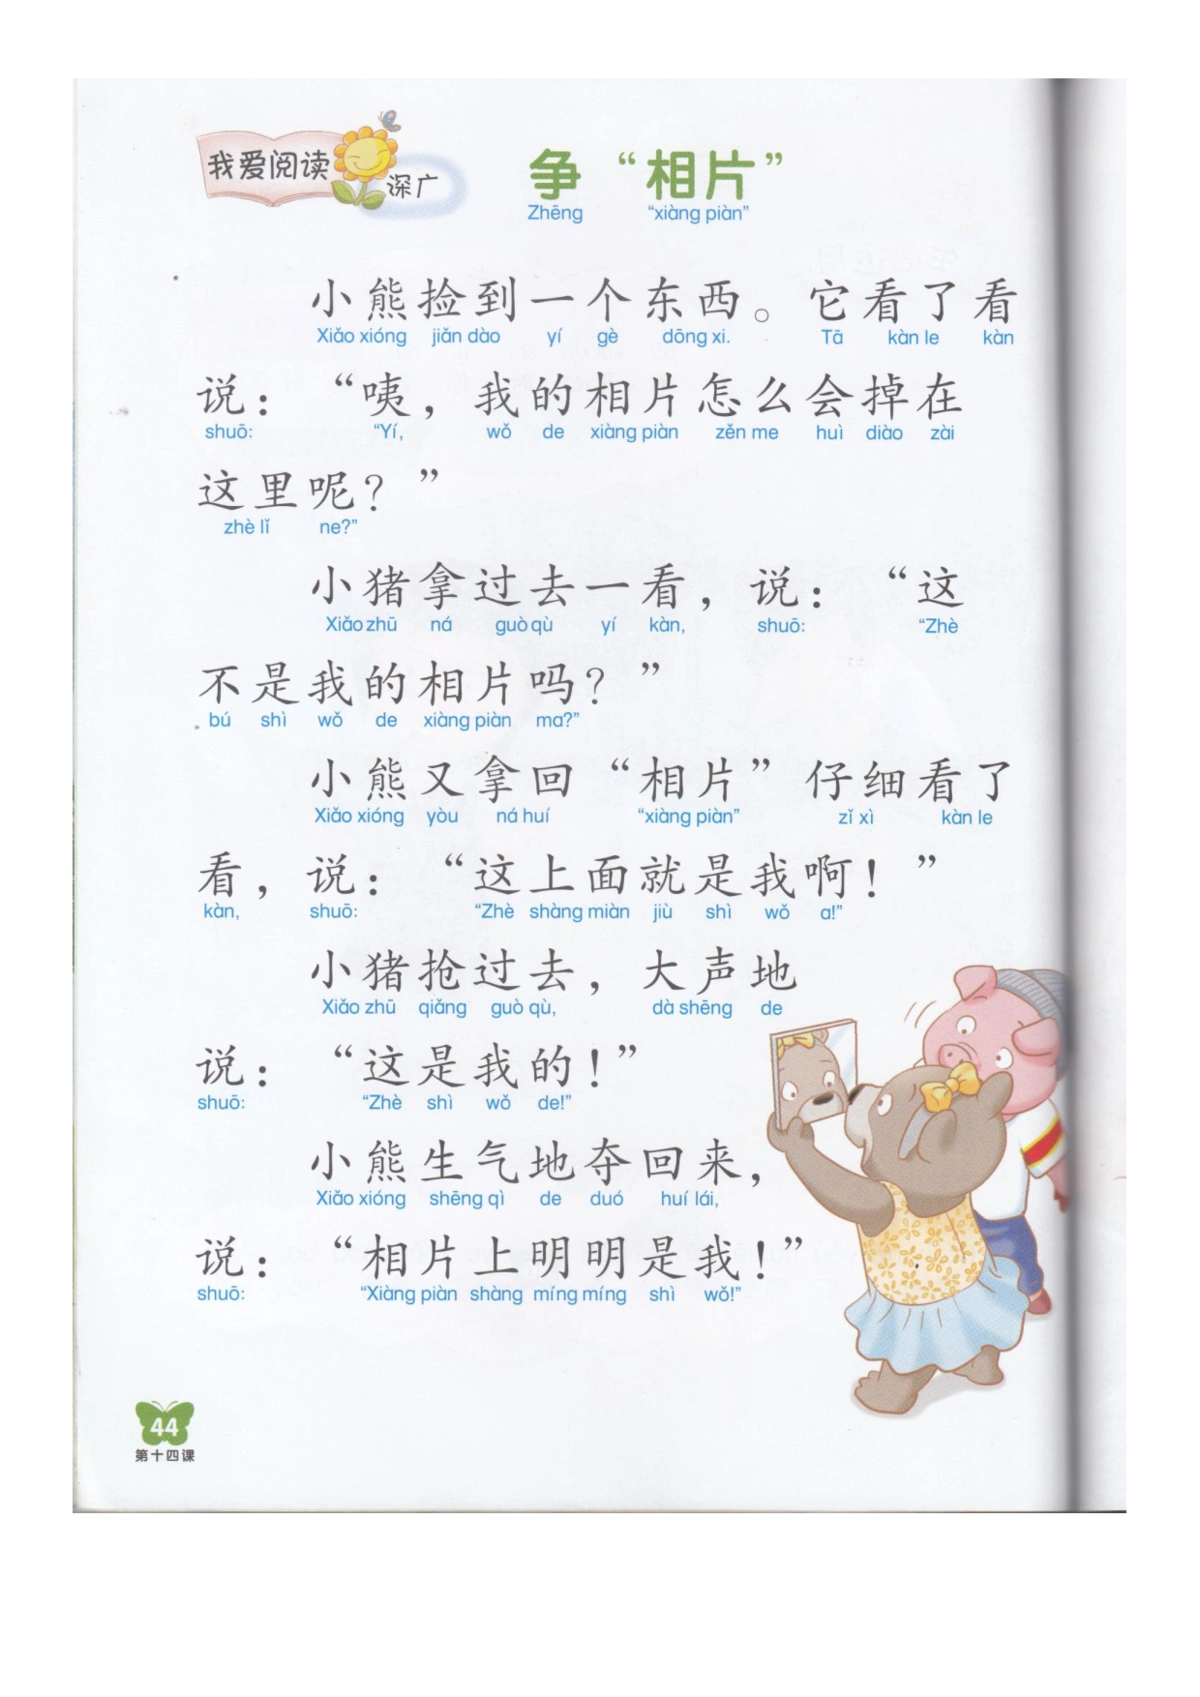 我爱阅读
深广
争“相片”
Zhēng “xiàng piàn”
小熊捡到一个东西。它看了看
Xiǎo xióng jiǎn dào yí gè dōng xi. Tā kàn le kàn
说：“咦，我的相片怎么会掉在
shuō: “Yí, wǒ de xiàng piàn zěn me huì diào zài
这里呢？”
zhè lǐ ne?”
小猪拿过去一看，说：“这
Xiǎo zhū ná guò qù yí kàn, shuō: “Zhè
不是我的相片吗？”
bú shì wǒ de xiàng piàn ma?”
小熊又拿回“相片”仔细看了
Xiǎo xióng yòu ná huí “xiàng piàn” zǐ xì kàn le
看，说：“这上面就是我啊！”
kàn, shuō: “Zhè shàng miàn jiù shì wǒ a!”
小猪抢过去，大声地
Xiǎo zhū qiǎng guò qù, dà shēng de
说：“这是我的！”
shuō: “Zhè shì wǒ de!”
小熊生气地夺回来，
Xiǎo xióng shēng qì de duó huí lái,
说：“相片上明明是我！”
shuō: “Xiàng piàn shàng míng míng shì wǒ!”
44
第十四课